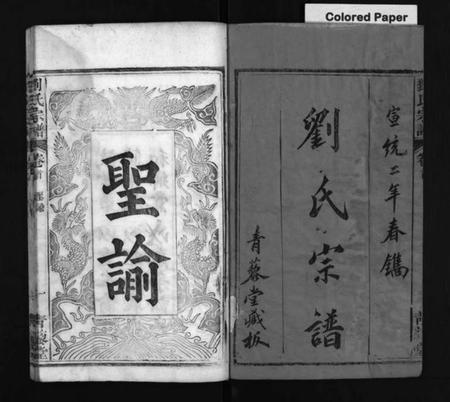 Colored Paper
宣統二年春鐫
劉氏宗譜
青藜堂藏板
聖諭
劉氏宗譜